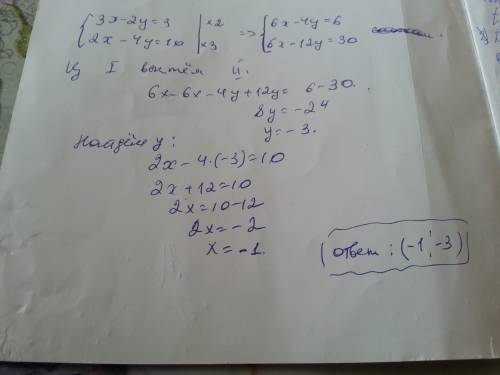 {3x-2y=3 |×2 => {6x-4y=6
{2x-4y=10 |×3 {6x-12y=30
Из I вычтем II.
6x-6x-4y+12y= 6-30.
8y=-24
y=-3.
Найдём y:
2x-4·(-3)=10
2x+12=10
2x=10-12
2x=-2
x=-1.
Ответ: (-1;-3)